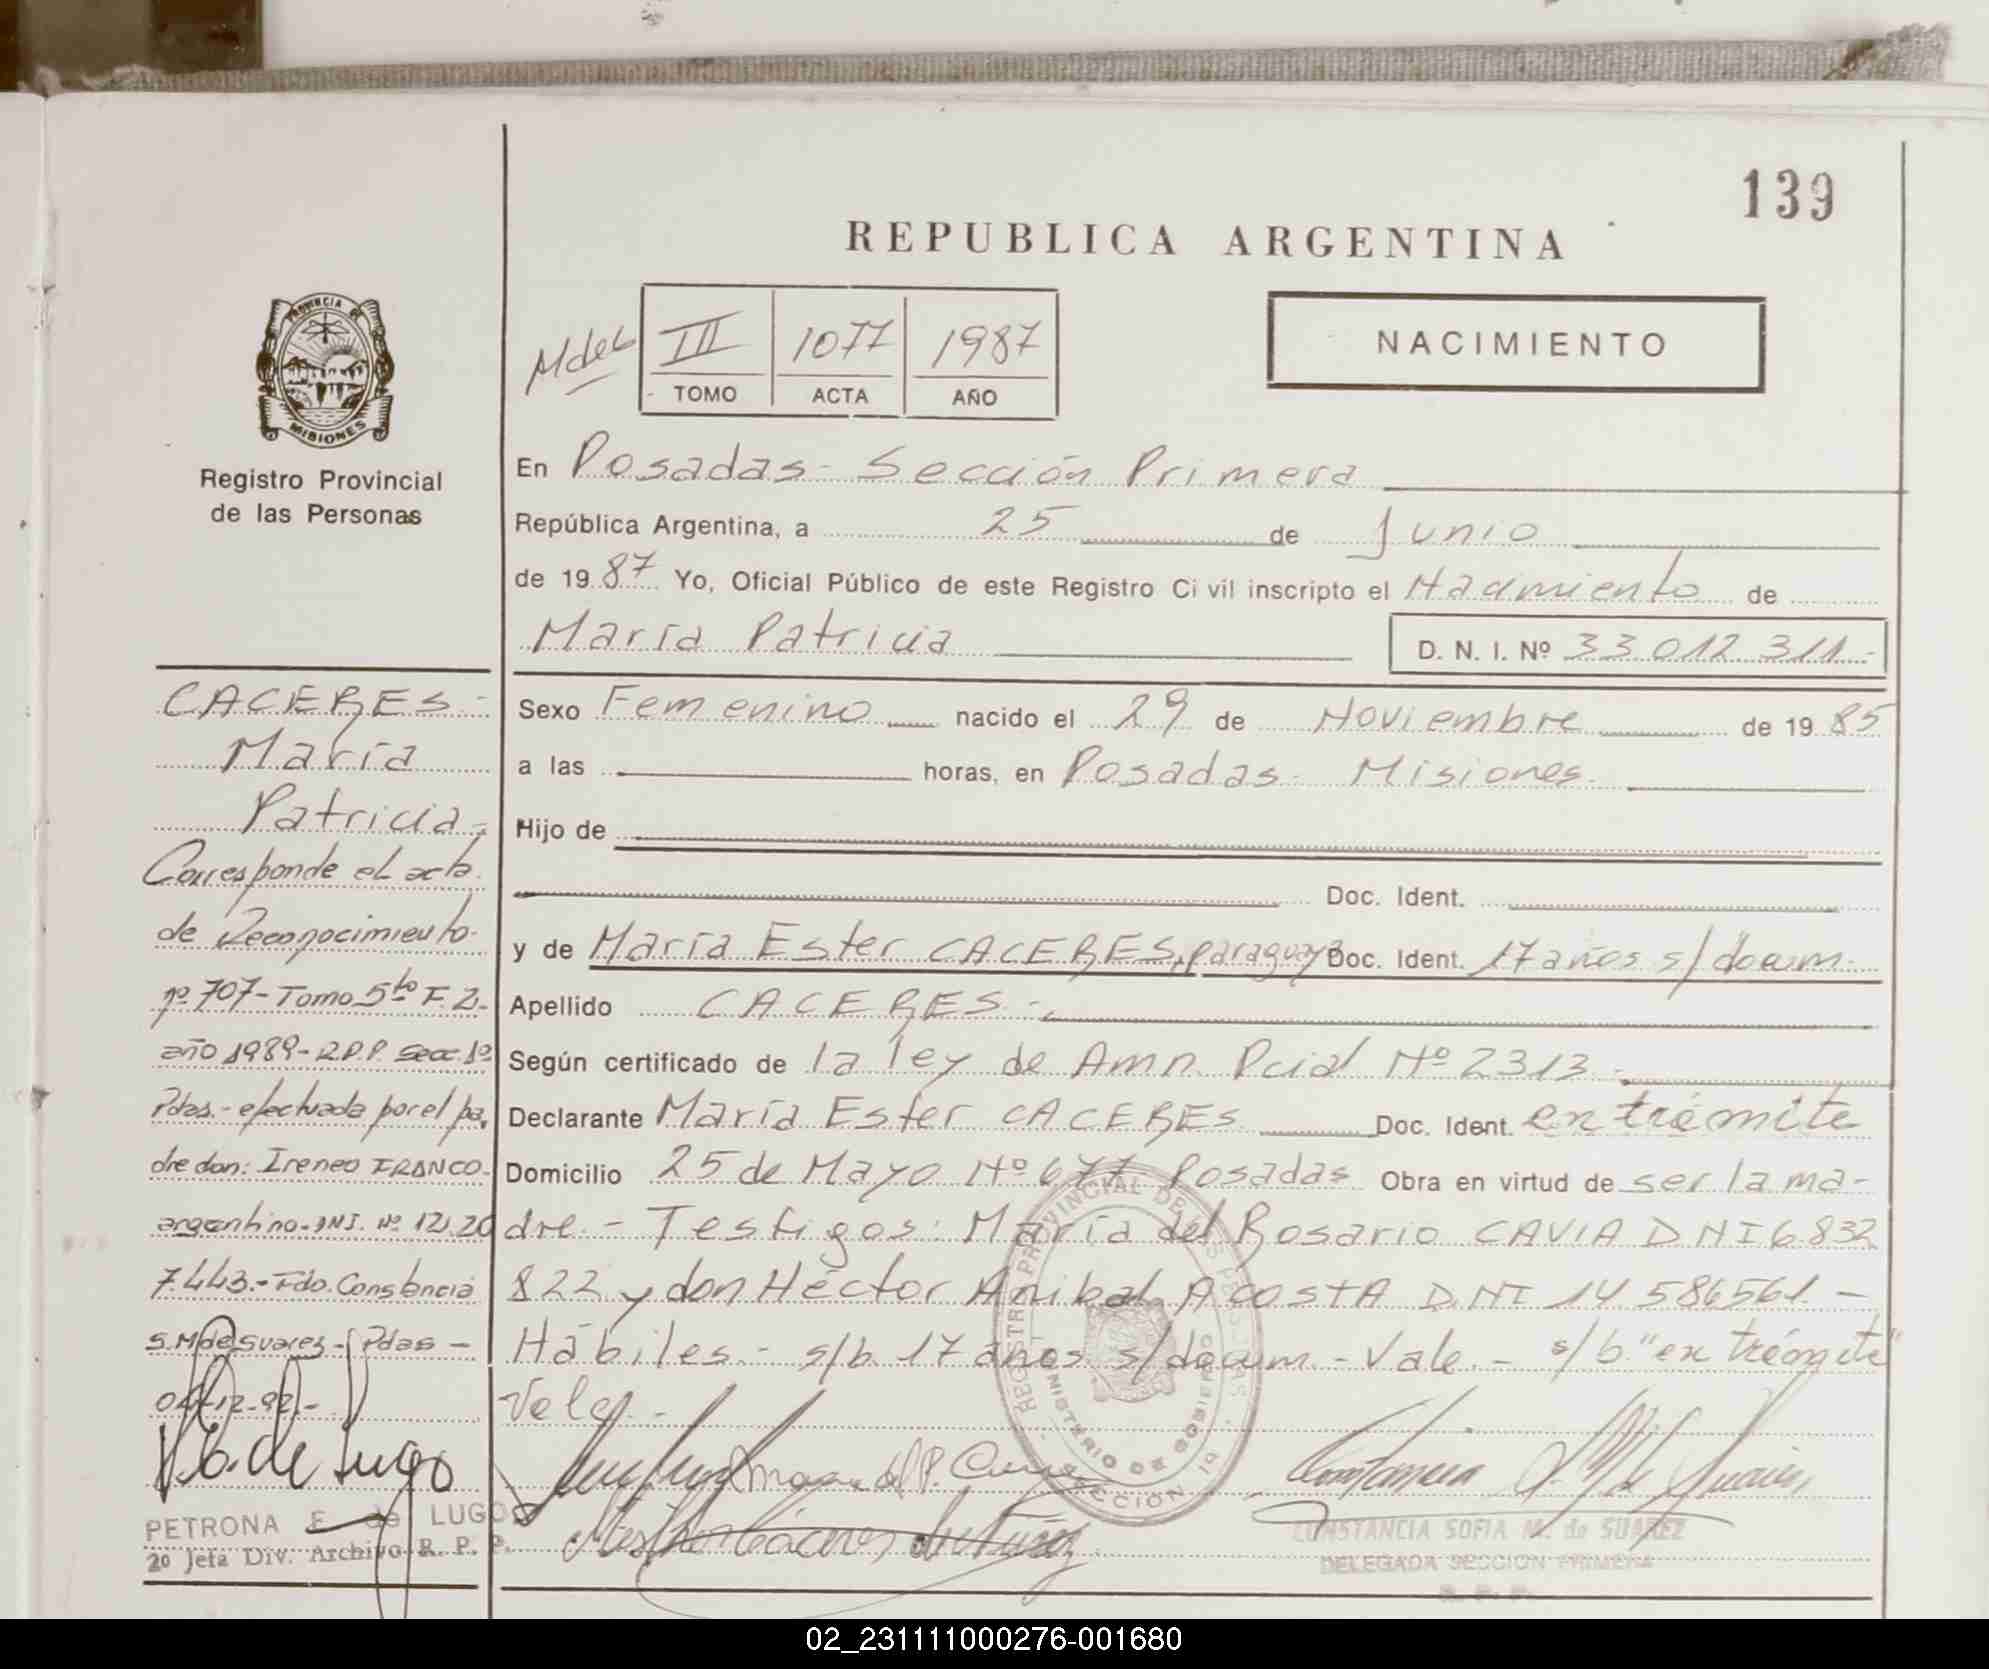 139
REPUBLICA ARGENTINA
Mdel
III 1077 1987
TOMO ACTA AÑO
NACIMIENTO
PROVINCIA DE
MISIONES
Registro Provincial
de las Personas
En Posadas - Sección Primera
República Argentina, a 25 de Junio
de 1987 Yo, Oficial Público de este Registro Ci vil inscripto el Nacimiento de
María Patricia D. N. I. Nº 33.012.311.-
Sexo Femenino nacido el 29 de Noviembre de 1985
a las horas, en Posadas - Misiones.
Hijo de
Doc. Ident.
y de María Ester CACERES, paraguaya Doc. Ident. 17 años s/docum.
Apellido CACERES.-
Según certificado de la ley de Amn. Pcial Nº 2313.-
Declarante María Ester CACERES Doc. Ident. en trámite
Domicilio 25 de Mayo Nº 677 Posadas Obra en virtud de ser la ma-
dre.- Testigos: María del Rosario CAVIA DNI 6.832
822 y don Héctor Anibal AcostA D.NI 14.586561.-
Hábiles.- s/b. 17 años s/docum.- Vale.- s/b. "en trámite"
Vale.-
CACERES -
María
Patricia,-
Corresponde el acta
de Reconocimiento.
nº 707- Tomo 5to F. 2.-
año 1989- R.P.P. Secc. 1º
Pdas.- efectuada por el pa,
dre don: Ireneo FRANCO-
argentino- DNI. Nº 12.20
7.443.- Fdo. Constancia
S. M de Suarez - Pdas -
04-12-92.-
de Lugo
PETRONA E. de LUGO
2º Jefa Div. Archivo R. P. P.
REGISTRO PROVINCIAL DE LAS PERSONAS
MINISTERIO DE GOBIERNO
SECCION 1ª
Constancia S. M. de Suarez
CONSTANCIA SOFIA M. de SUAREZ
DELEGADA SECCION PRIMERA
R. P. P.
02_231111000276-001680